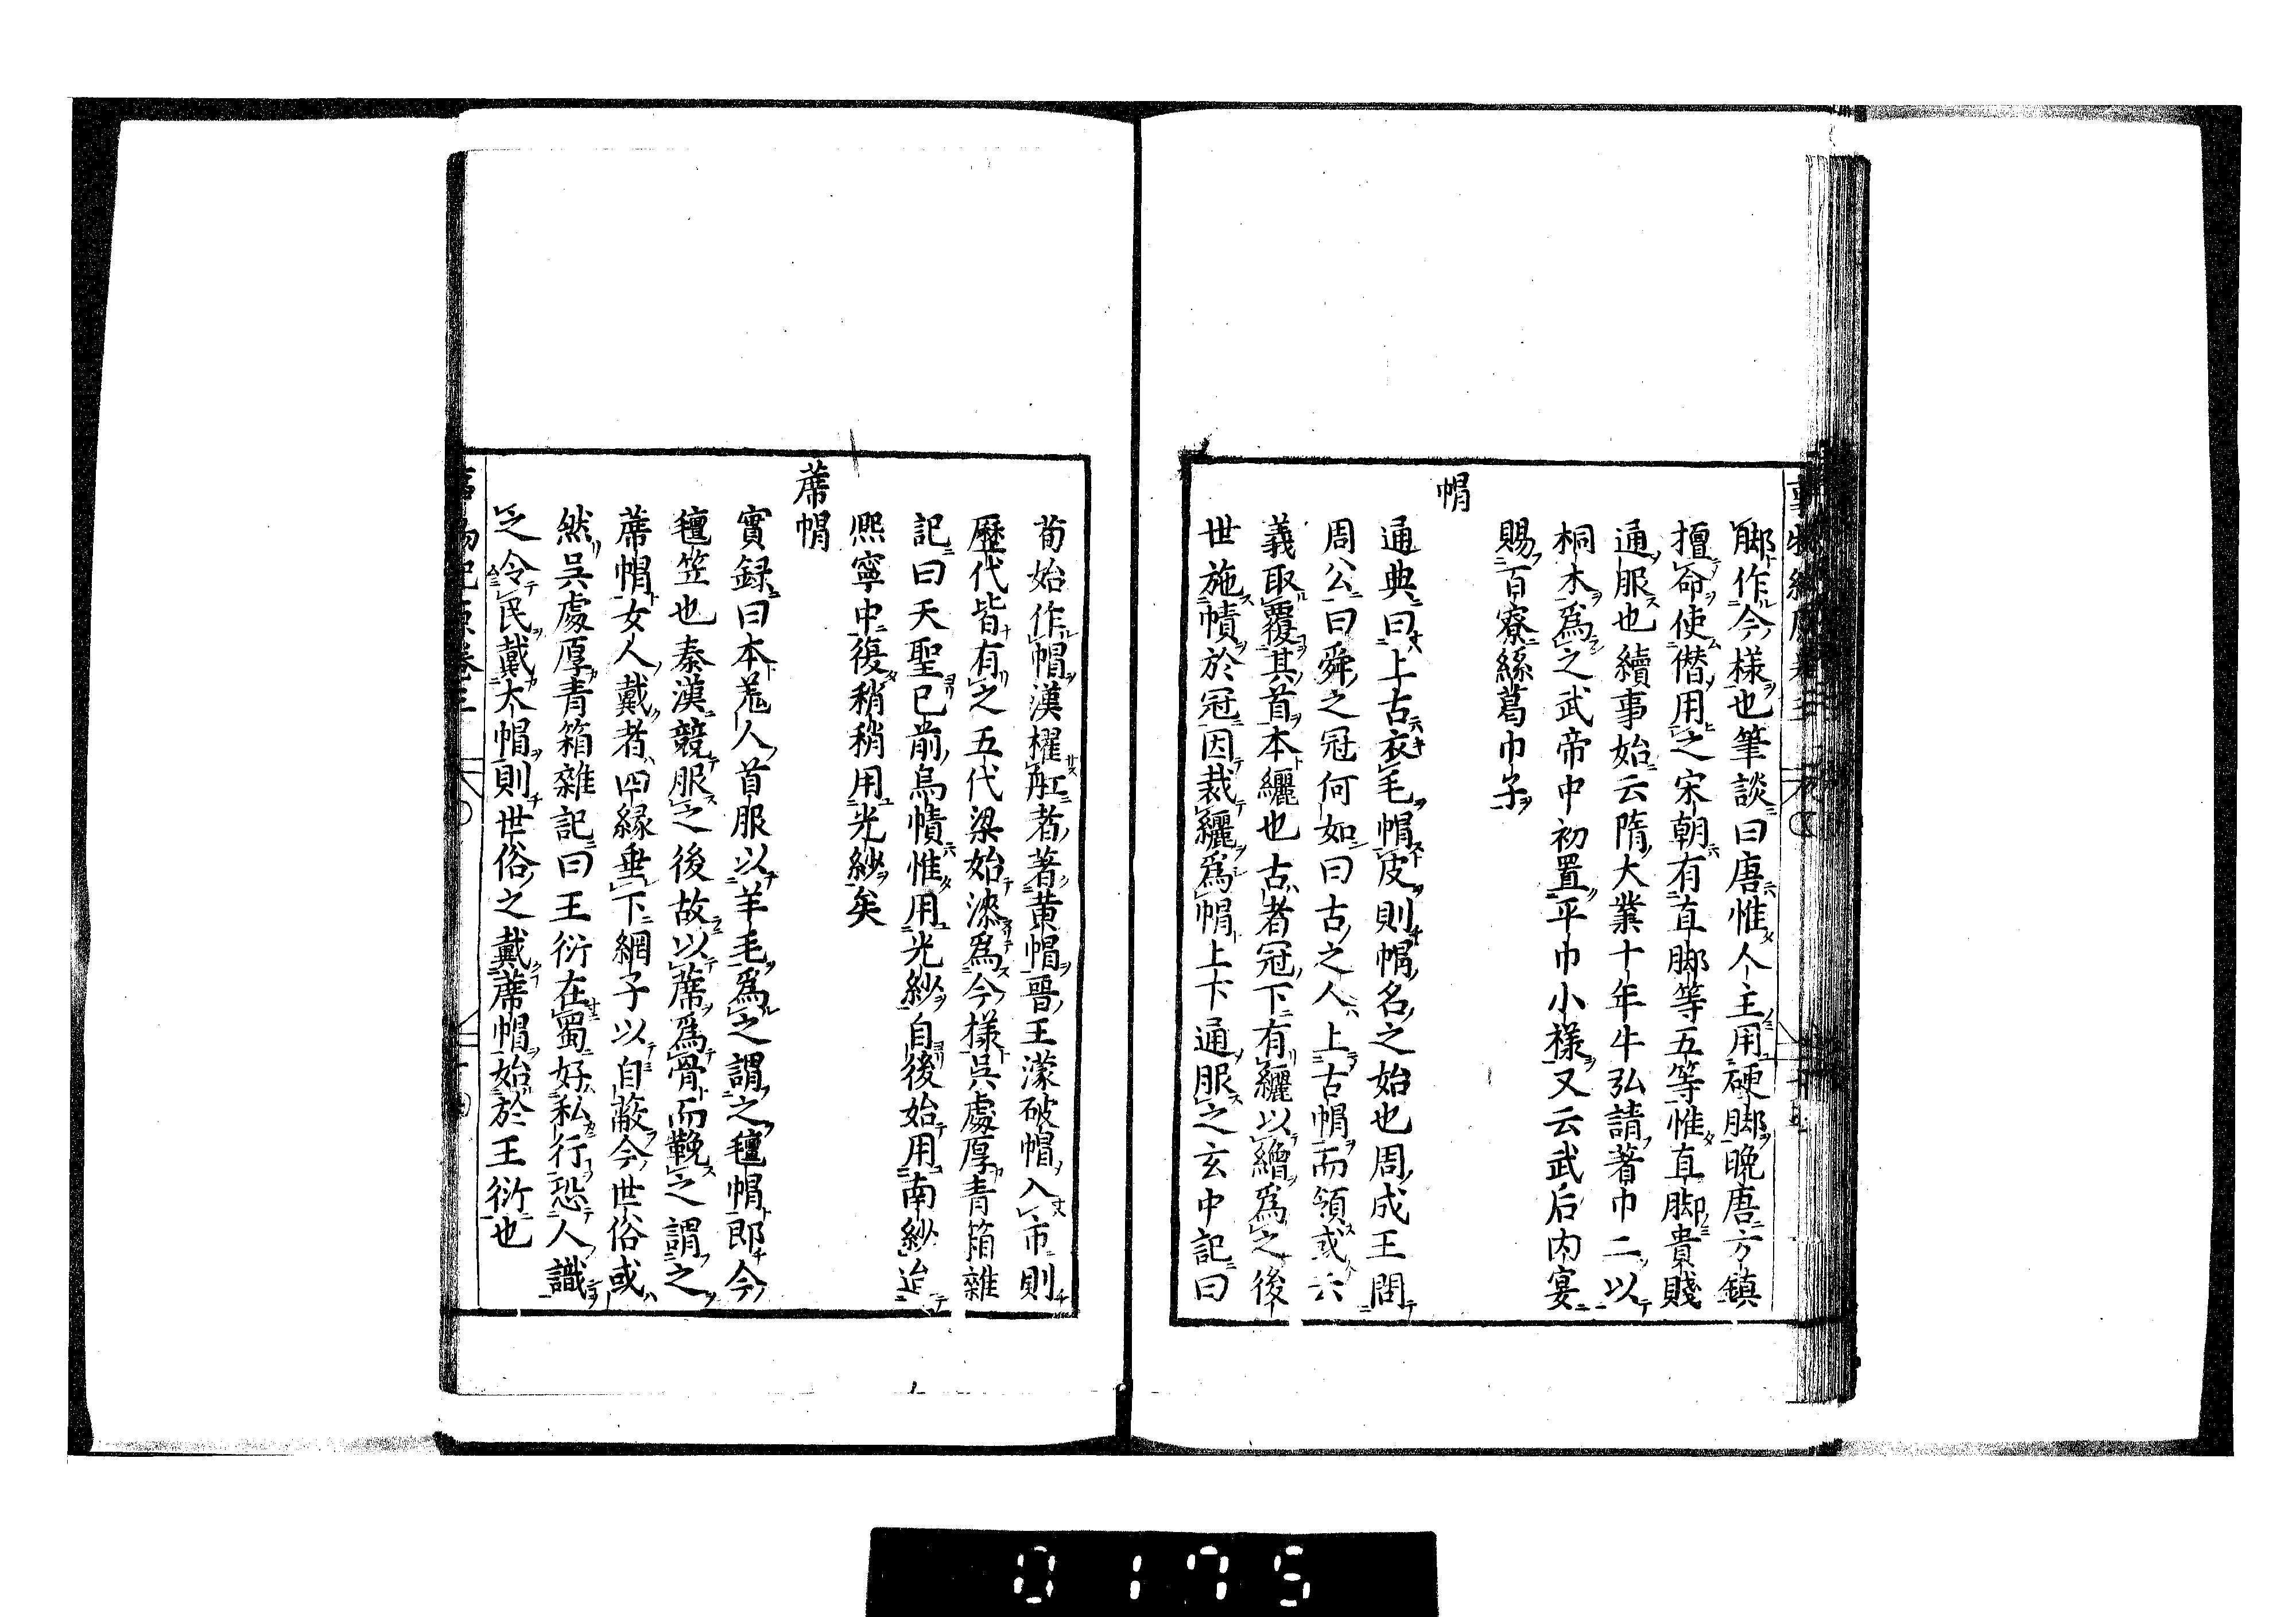 脚作今様也筆談曰唐惟人主用硬脚晩唐方鎮
擅命使僣用之宋朝有直脚等五等惟直脚貴賤
通服也續事始云隋大業十年牛弘請著巾二以
桐木為之武帝中初置平巾小様又云武后内宴
賜百寮絲葛巾子
帽
通典曰上古衣毛帽皮則帽名之始也周成王問
周公曰舜之冠何如曰古之人上古帽而領或云
義取覆其首本纚也古者冠下有纚以繒為之後
世施幘於冠因裁纚為帽上下通服之玄中記曰
荀始作帽漢櫂舡者著黄帽晉王濛破帽入市則
歴代皆有之五代梁始漆為今様呉處厚青箱雜
記曰天聖已前烏幘惟用光紗自後始用南紗迨
熈寧中復稍稍用光紗矣
蓆帽
實録曰本羗人首服以羊毛為之謂之氊帽即今
氊笠也秦漢競服之後故以蓆為骨而鞔之謂之
蓆帽女人戴者四縁垂下網子以自蔽今世俗或
然呉處厚青箱雜記曰王衍在蜀好私行恐人識
之令民戴大帽則世俗之戴蓆帽始於王衍也
0175